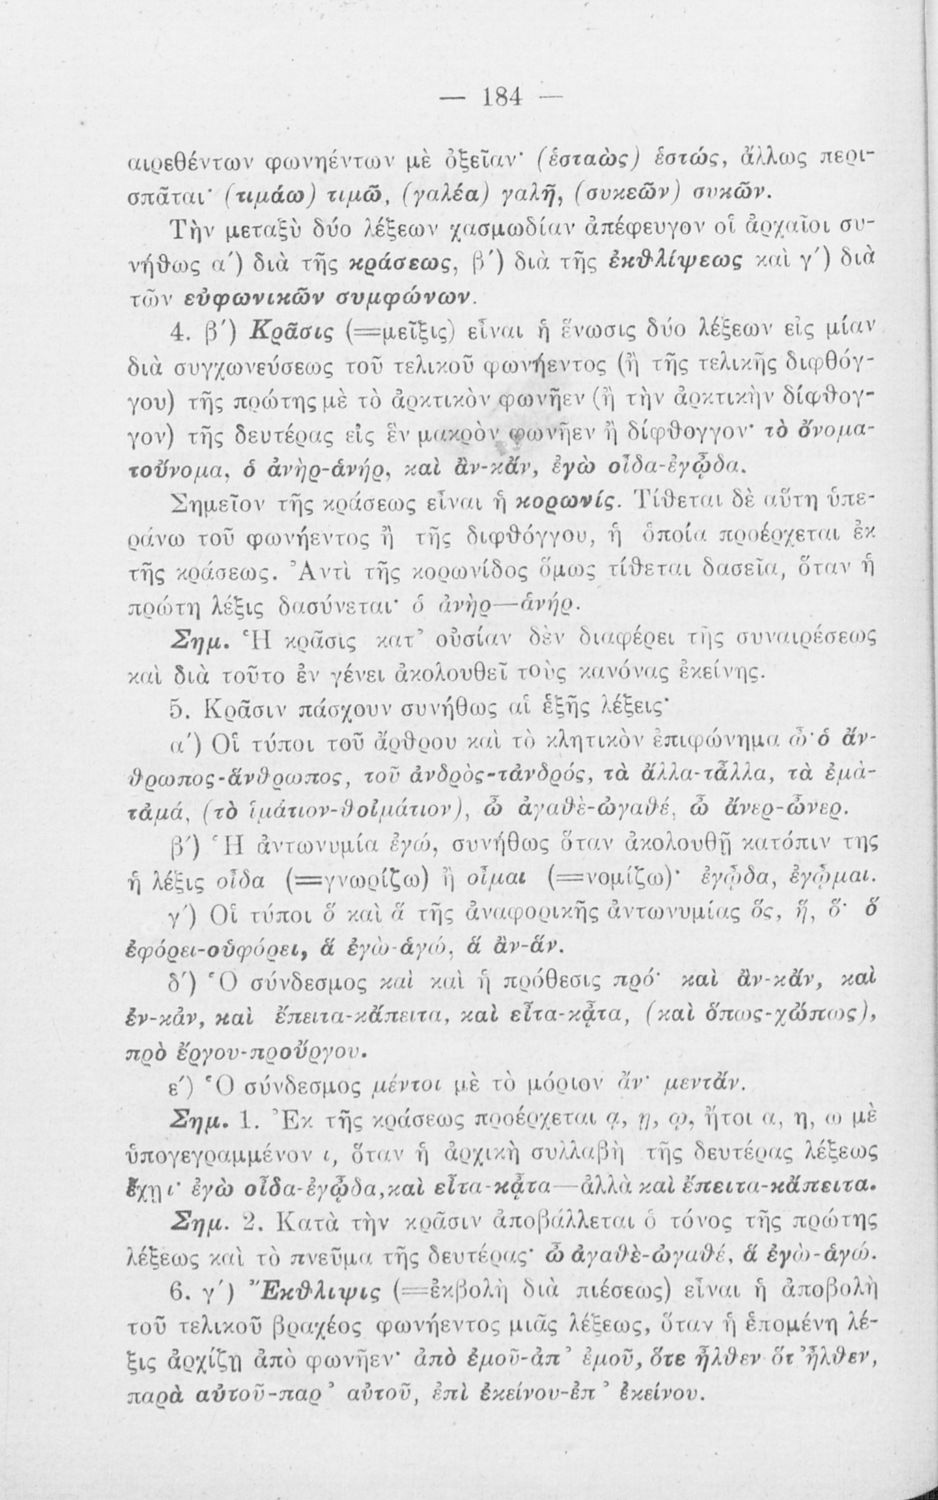 — 184 —
αιρεθέντων φωνηέντων μὲ ὀξεῖαν· (ἑσταὼς) ἑστώς, ἄλλως περι-
σπᾶται· (τιμάω) τιμῶ, (γαλέα) γαλῆ, (συκεῶν) συκῶν.
Τὴν μεταξὺ δύο λέξεων χασμωδίαν ἀπέφευγον οἱ ἀρχαῖοι συ-
νήθως α΄) διὰ τῆς κράσεως, β΄) διὰ τῆς ἐκθλίψεως καὶ γ΄) διὰ
τῶν εὐφωνικῶν συμφώνων.
4. β΄) Κρᾶσις (=μεῖξις) εἶναι ἡ ἕνωσις δύο λέξεων εἰς μίαν
διὰ συγχωνεύσεως τοῦ τελικοῦ φωνήεντος (ἢ τῆς τελικῆς διφθόγ-
γου) τῆς πρώτης μὲ τὸ ἀρκτικὸν φωνῆεν (ἢ τὴν ἀρκτικὴν δίφθογ-
γον) τῆς δευτέρας εἰς ἓν μακρὸν φωνῆεν ἢ δίφθογγον· τὸ ὄνομα-
τοὔνομα, ὁ ἀνὴρ-ἁνήρ, καὶ ἂν-κἄν, ἐγὼ οἶδα-ἐγᾦδα.
Σημεῖον τῆς κράσεως εἶναι ἡ κορωνίς. Τίθεται δὲ αὕτη ὑπε-
ράνω τοῦ φωνήεντος ἢ τῆς διφθόγγου, ἡ ὁποία προέρχεται ἐκ
τῆς κράσεως. Ἀντὶ τῆς κορωνίδος ὅμως τίθεται δασεῖα, ὅταν ἡ
πρώτη λέξις δασύνεται· ὁ ἀνὴρ—ἁνήρ.
Σημ. Ἡ κρᾶσις κατ' οὐσίαν δὲν διαφέρει τῆς συναιρέσεως
καὶ διὰ τοῦτο ἐν γένει ἀκολουθεῖ τοὺς κανόνας ἐκείνης.
5. Κρᾶσιν πάσχουν συνήθως αἱ ἑξῆς λέξεις·
α΄) Οἱ τύποι τοῦ ἄρθρου καὶ τὸ κλητικὸν ἐπιφώνημα ὦ· ὁ ἄν-
θρωπος-ἅνθρωπος, τοῦ ἀνδρὸς-τἀνδρός, τὰ ἄλλα-τἆλλα, τὰ ἐμὰ-
τἀμά, (τὸ ἱμάτιον-θοἰμάτιον), ὦ ἀγαθὲ-ὠγαθέ, ὦ ἄνερ-ὦνερ.
β΄) Ἡ ἀντωνυμία ἐγώ, συνήθως ὅταν ἀκολουθῇ κατόπιν της
ἡ λέξις οἶδα (=γνωρίζω) ἢ οἶμαι (=νομίζω)· ἐγᾦδα, ἐγᾦμαι.
γ΄) Οἱ τύποι ὅ καὶ ἅ τῆς ἀναφορικῆς ἀντωνυμίας ὅς, ἥ, ὅ· ὅ
ἐφόρει-οὑφόρει, ἅ ἐγὼ-ἁγώ, ἅ ἂν-ἅν.
δ΄) Ὁ σύνδεσμος καὶ καὶ ἡ πρόθεσις πρό· καὶ ἂν-κἄν, καὶ
ἐν-κἀν, καὶ ἔπειτα-κἄπειτα, καὶ εἶτα-κᾆτα, (καὶ ὅπως-χὤπως),
πρὸ ἔργου-προὔργου.
ε΄) Ὁ σύνδεσμος μέντοι μὲ τὸ μόριον ἄν· μεντἄν.
Σημ. 1. Ἐκ τῆς κράσεως προέρχεται ᾳ, ῃ, ῳ, ἤτοι α, η, ω μὲ
ὑπογεγραμμένον ι, ὅταν ἡ ἀρχικὴ συλλαβὴ τῆς δευτέρας λέξεως
ἔχῃ ι· ἐγὼ οἶδα-ἐγᾦδα, καὶ εἶτα-κᾆτα—ἀλλὰ καὶ ἔπειτα-κἄπειτα.
Σημ. 2. Κατὰ τὴν κρᾶσιν ἀποβάλλεται ὁ τόνος τῆς πρώτης
λέξεως καὶ τὸ πνεῦμα τῆς δευτέρας· ὦ ἀγαθὲ-ὠγαθέ, ἅ ἐγὼ-ἁγώ.
6. γ΄) Ἔκθλιψις (=ἐκβολὴ διὰ πιέσεως) εἶναι ἡ ἀποβολὴ
τοῦ τελικοῦ βραχέος φωνήεντος μιᾶς λέξεως, ὅταν ἡ ἑπομένη λέ-
ξις ἀρχίζῃ ἀπὸ φωνῆεν· ἀπὸ ἐμοῦ-ἀπ' ἐμοῦ, ὅτε ἦλθεν ὅτ' ἦλθεν,
παρὰ αὐτοῦ-παρ' αὐτοῦ, ἐπὶ ἐκείνου-ἐπ' ἐκείνου.